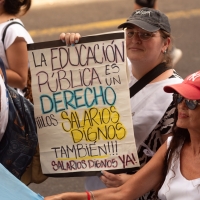 LA EDUCACIÓN
PÚBLICA ES
UN
DERECHO
¡¡¡LOS SALARIOS
DIGNOS
TAMBIÉN!!!
SALARIOS DIGNOS YA!